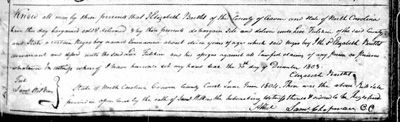 Know all men by these presents that I Elizabeth Bartles of the County of Craven and State of North Carolina
have this day bargained and sold & delivered & by these presents do bargain sell and deliver unto Levi Fulshear of the said County
and State a certain Negro boy named about seven years of age which said negro boy I the sd Elizabeth Bartles
warrant and defend unto the said Levi Fulshear and his assigns against the lawful claims of any person or persons
whatever In testimony whereof I have hereunto set my hand this the 3rd day of December 1803
Elizabeth Bartles
Test
State of North Carolina Craven County Court June Term 1804. Then was the above Bill Sale
proved in open Court by the oath of the subscribing witness thereto & ordered to be Registered
Attest Saml Chapman C.C.